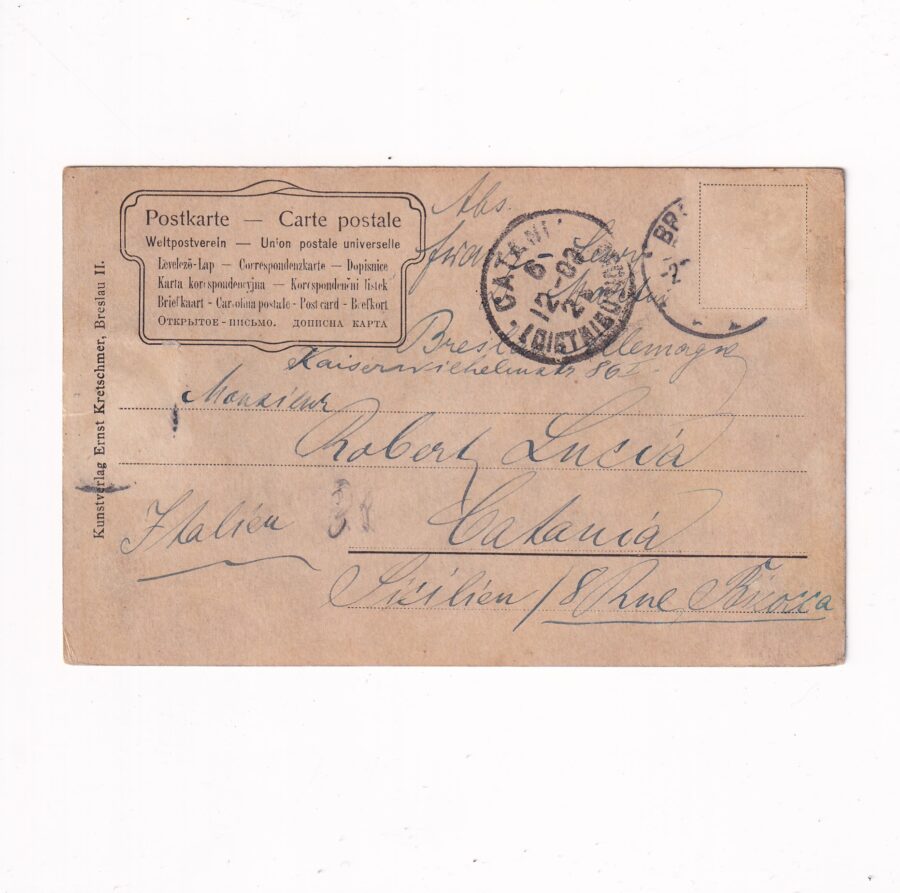 Postkarte — Carte postale
Weltpostverein — Union postale universelle
Levelező-Lap — Correspondenzkarte — Dopisnice
Karta korespondencyjna — Korespondenční lístek
Briefkaart - Cartolina postale - Post card - Brefkort
ОТКРЫТОЕ - ПИСЬМО. ДОПИСНА КАРТА
Kunstverlag Ernst Kretschmer, Breslau II.
Abs.
CATANI
6
12-02
(DISTRIBUZION
BR
Breslau Allemagne
Kaiserwilhelmstr 86 I.
Monsieur
Robert Lucia
Italien
Catania
Sicilien / 8 Rue